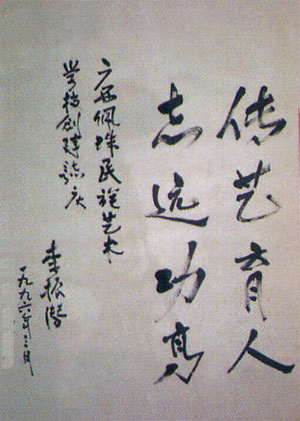 传艺育人
志远功高
广西佩珠民族艺术
学校创建誌庆
李振潜
一九九六年三月